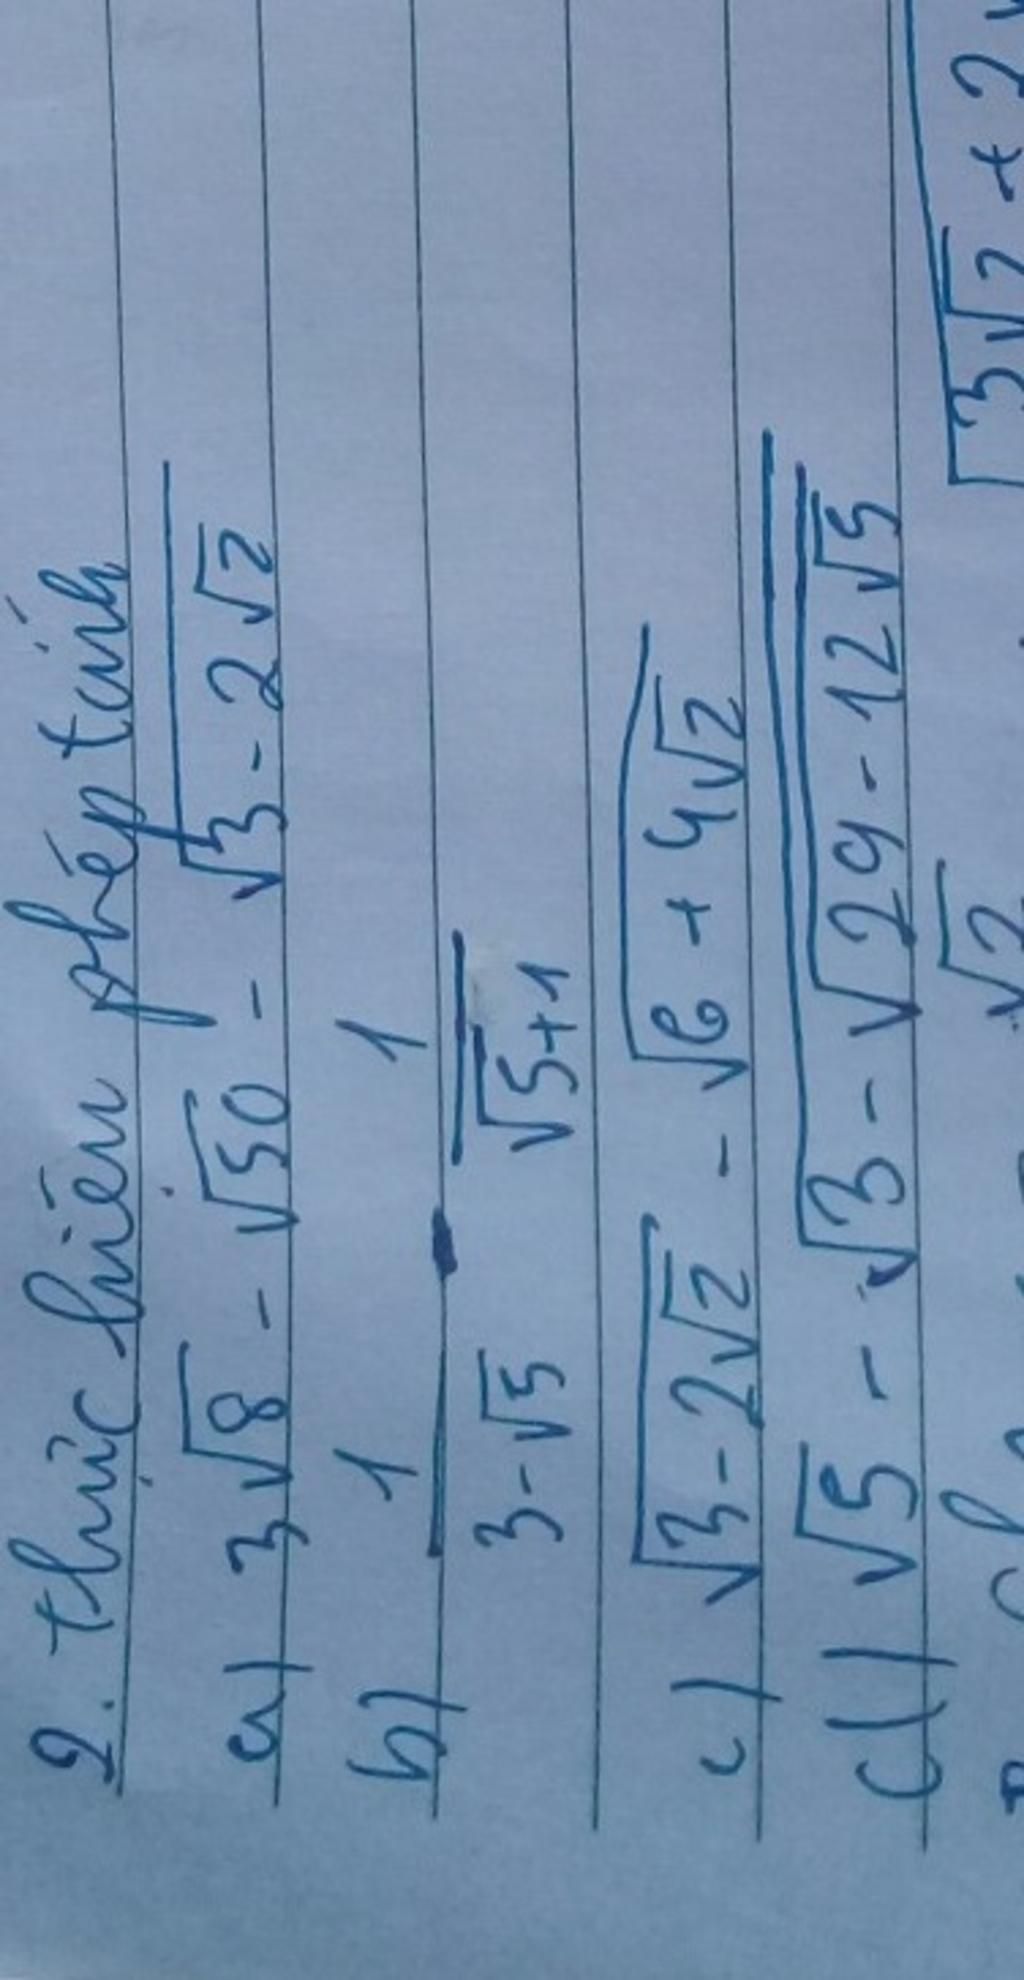 2. thực hiện phép tính
a) 3√8 - √50 - √(3 - 2√2)
b) 1/(3 - √5) - 1/(√5 + 1)
c) √(3 - 2√2) - √(6 + 4√2)
d) √5 - √(3 - √(29 - 12√5))
3√2 + 2
√2